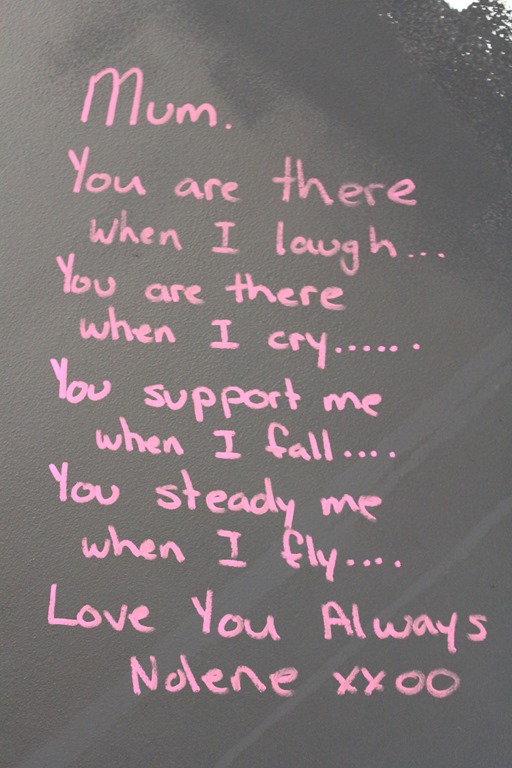 Mum.
You are there
when I laugh...
You are there
when I cry......
You support me
when I fall....
You steady me
when I fly....
Love You Always
Nolene xxoo